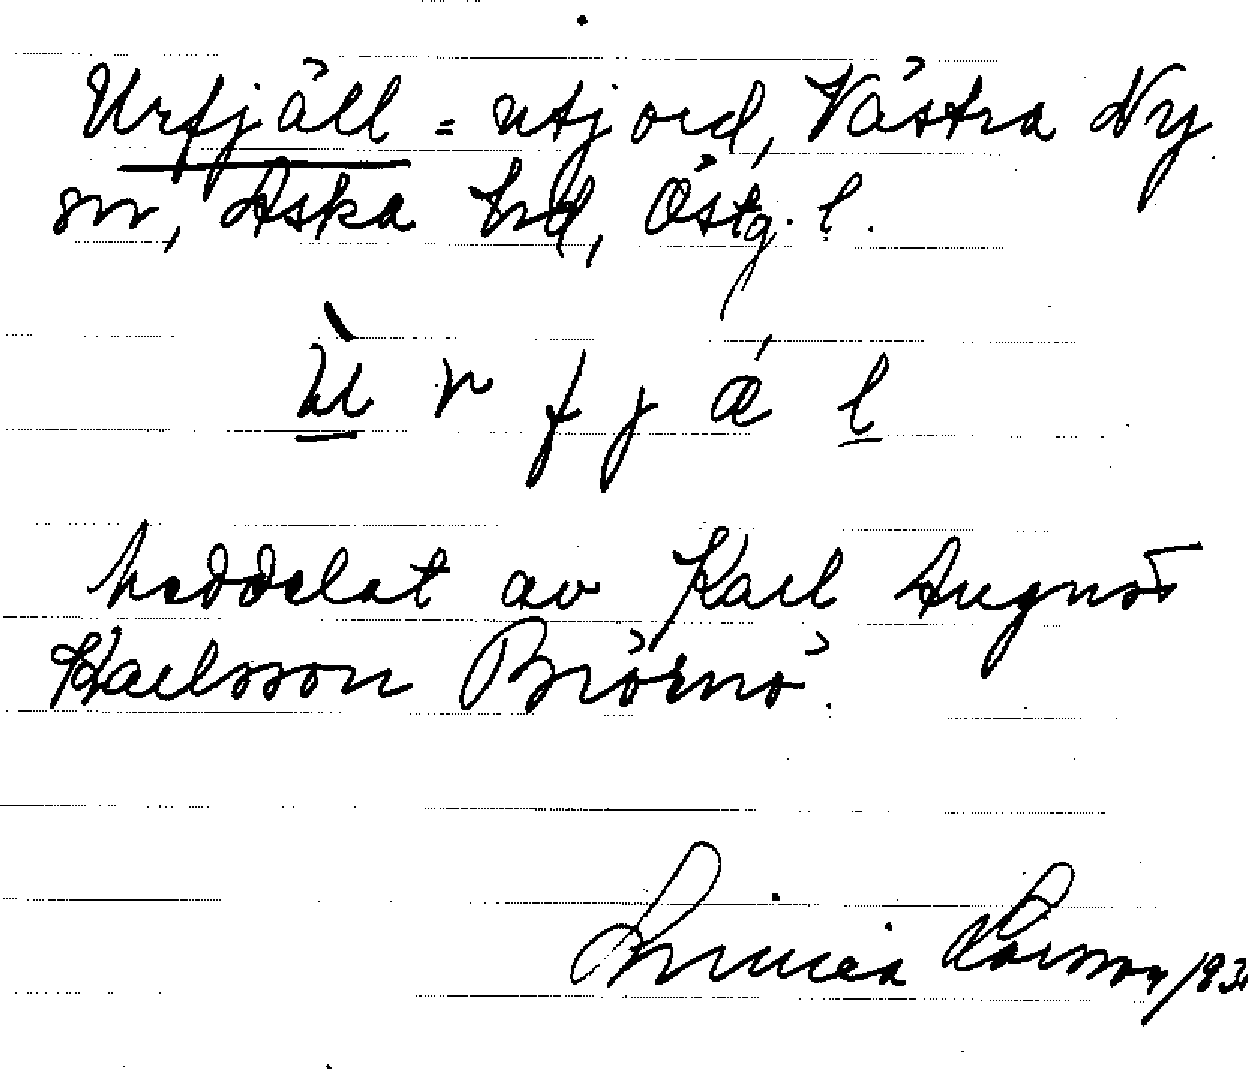 Urfjäll = utjord, Västra Ny
sn, Aska hd, Östg. l.
ù r f j ǽ l
Meddelat av Karl August
Karlsson Björnö.
Linnea Larsson 193